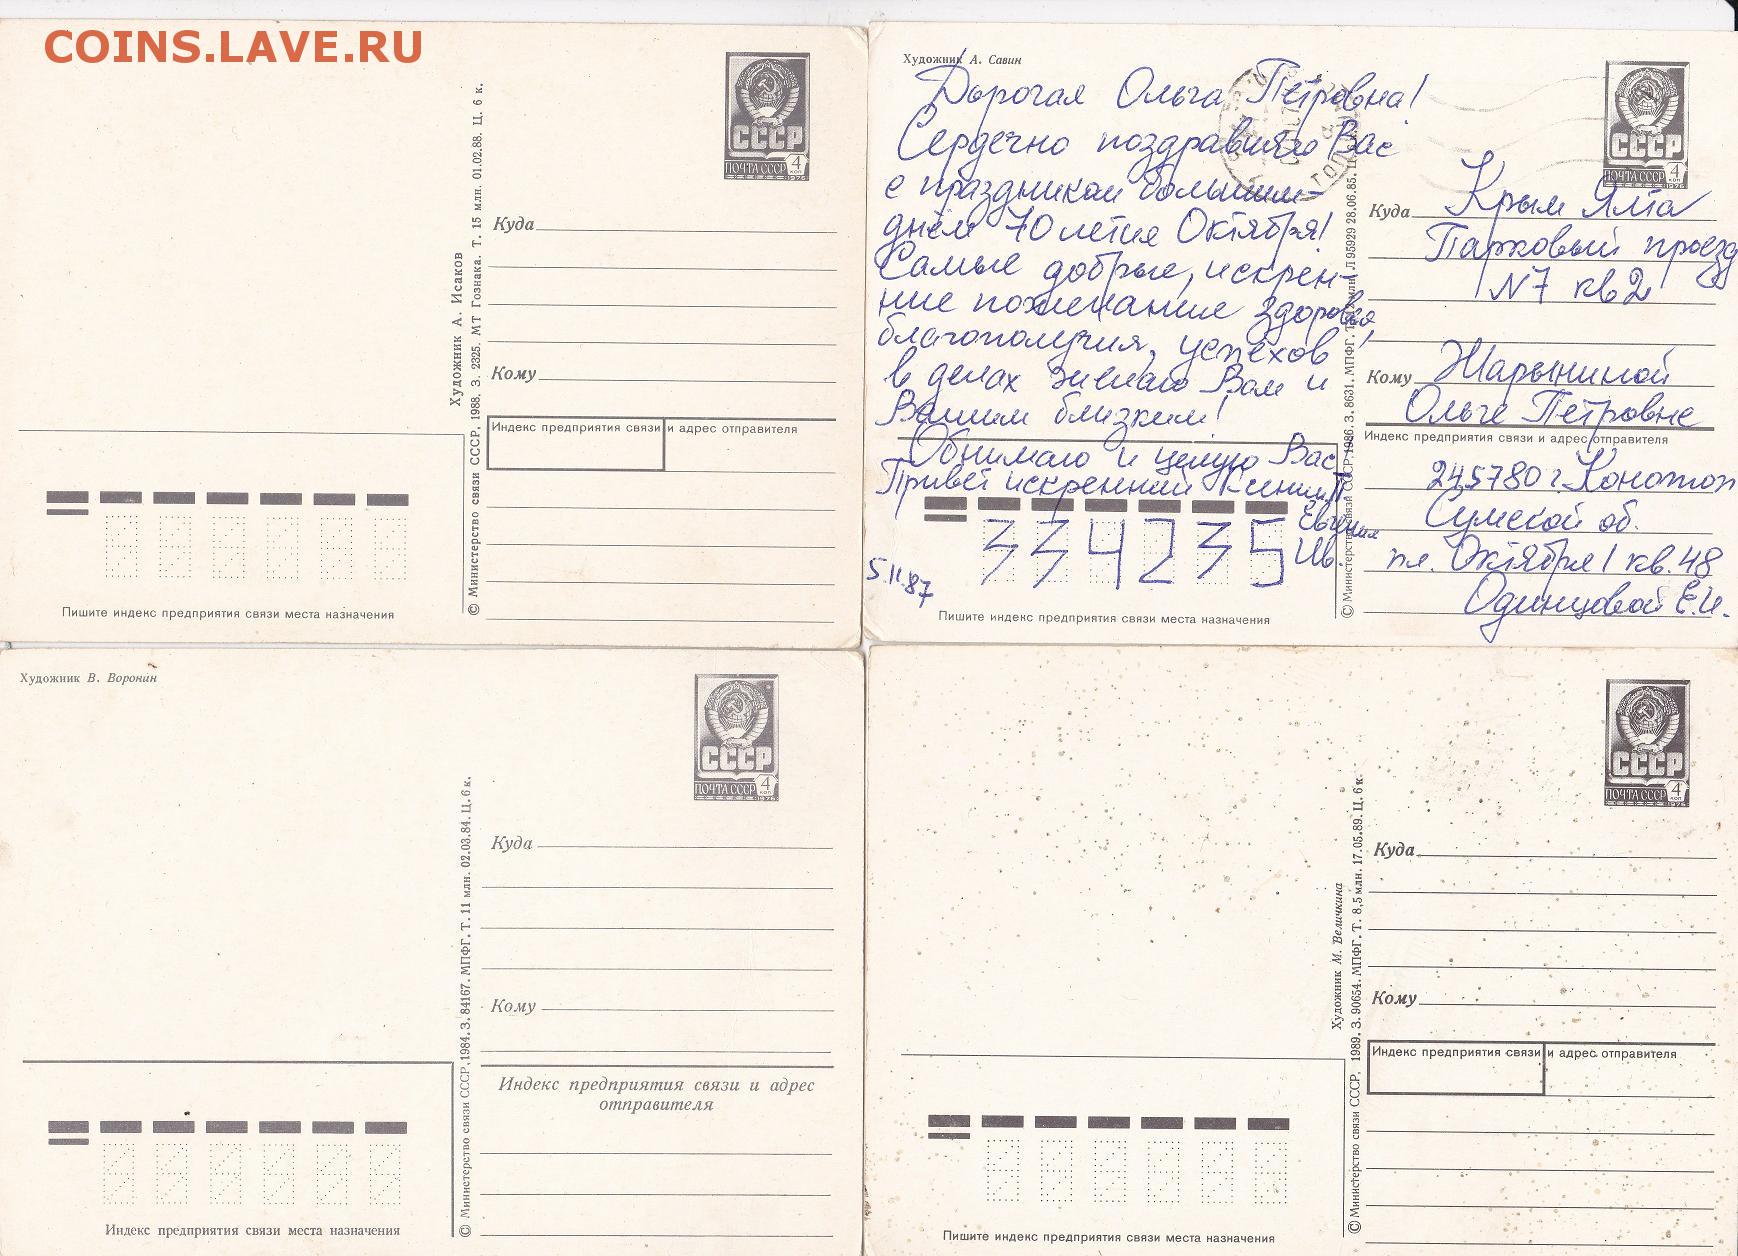 COINS.LAVE.RU
СССР
ПОЧТА СССР 4 коп
1976
Куда
Кому
Индекс предприятия связи и адрес отправителя
Художник А. Исаков
© Министерство связи СССР. 1988. З. 2325. МТ Гознака. Т. 15 млн. 01.02.88. Ц. 6 к.
Пишите индекс предприятия связи места назначения
Художник А. Савин
Дорогая Ольга Петровна!
Сердечно поздравляю Вас
с праздником большим –
днём 70 летия Октября!
Самые добрые, искрен-
ние пожелание здоровья,
благополучия, успехов
в делах желаю Вам и
Вашим близким!
Обнимаю и целую Вас
Привет искренний Ксении П
Евгения
Ив.
5.11.87
334235
Пишите индекс предприятия связи места назначения
© Министерство связи СССР. 1986. З. 8631. МПФГ. Л 95929 28.06.85. Ц.
СССР
ПОЧТА СССР 4 коп
1976
Куда Крым Ялта
Парковый проезд
N7 кв 2
Кому Жарыниной
Ольге Петровне
Индекс предприятия связи и адрес отправителя
245780 г. Конотоп
Сумской об.
пл. Октября 1 кв. 48
Одинцовой Е.И.
Художник В. Воронин
СССР
ПОЧТА СССР 4 коп
1976
Куда
Кому
Индекс предприятия связи и адрес
отправителя
© Министерство связи СССР. 1984. З. 84167. МПФГ. Т. 11 млн. 02.03.84. Ц. 6 к.
Индекс предприятия связи места назначения
СССР
ПОЧТА СССР 4 коп
1976
Куда
Кому
Индекс предприятия связи и адрес отправителя
Художник М. Величкина
© Министерство связи СССР. 1989. З. 90654. МПФГ. Т. 8,5 млн. 17.05.89. Ц. 6 к.
Пишите индекс предприятия связи места назначения